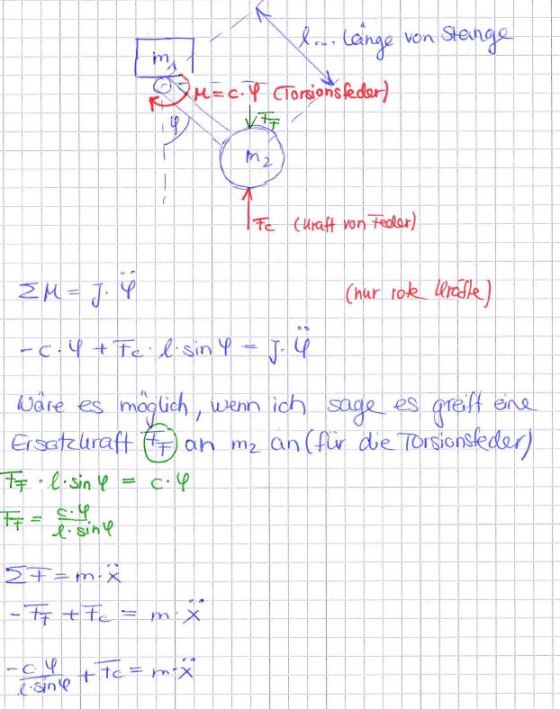 l... Länge von Stange
m₁
M = c·φ (Torsionsfeder)
φ
F_F
m₂
F_c (Kraft von Feder)
ΣM = J·φ̈ (nur rote Kräfte)
-c·φ + F_c·l·sinφ = J·φ̈
Wäre es möglich, wenn ich sage es greift eine
Ersatzkraft F_F an m₂ an (für die Torsionsfeder)
F_F · l·sinφ = c·φ
F_F = c·φ / l·sinφ
ΣF = m·ẍ
-F_F + F_c = m·ẍ
-c·φ / l·sinφ + F_c = m·ẍ